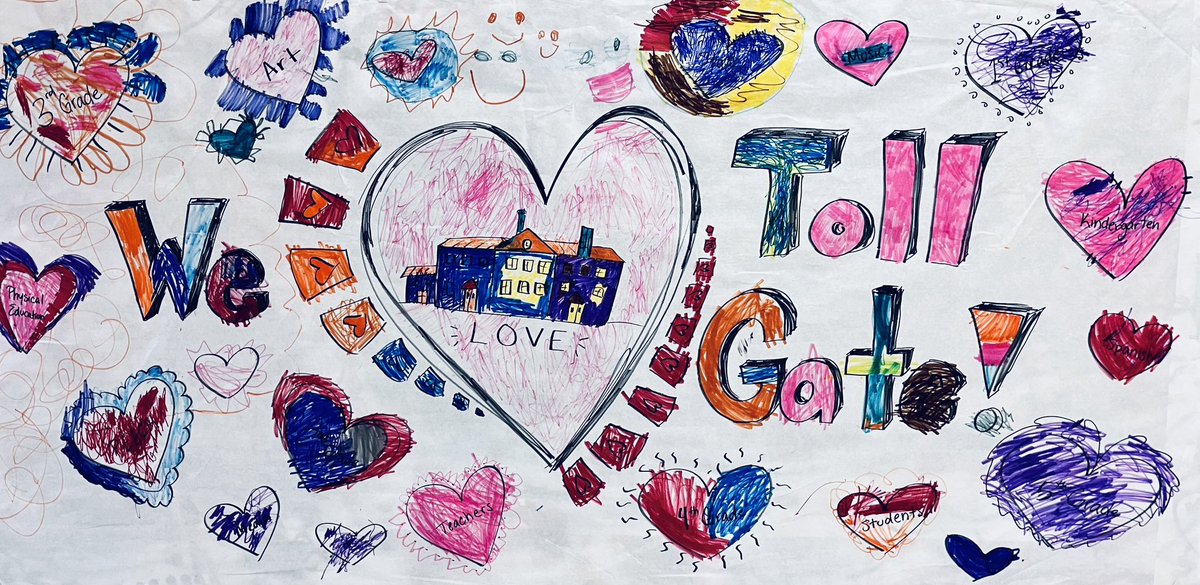 3rd Grade
Art
Music
1st Grade
We
LOVE
Toll
Gate!
Kindergarten
Physical
Education
Spanish
Teachers
4th Grade
Students
Grade